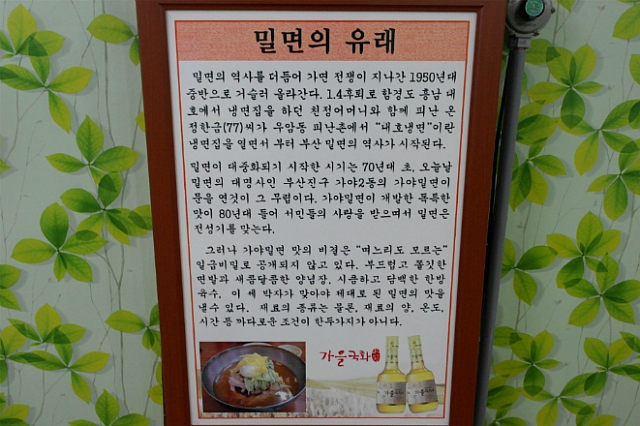 밀면의 유래
밀면의 역사를 더듬어 가면 전쟁이 지나간 1950년대
중반으로 거슬러 올라간다. 1.4후퇴로 함경도 흥남 대
호에서 냉면집을 하던 친정어머니와 함께 피난 온
정한금(77)씨가 우암동 피난촌에서 "대호냉면"이란
냉면집을 열면서 부터 부산 밀면의 역사가 시작된다.
밀면이 대중화되기 시작한 시기는 70년대 초. 오늘날
밀면의 대명사인 부산진구 가야2동의 가야밀면이
문을 연것이 그 무렵이다. 가야밀면이 개발한 독특한
맛이 80년대 들어 서민들의 사랑을 받으며서 밀면은
전성기를 맞는다.
그러나 가야밀면 맛의 비결은 "며느리도 모르는"
일급비밀로 공개되지 않고 있다. 부드럽고 쫄깃한
면발과 새콤달콤한 양념장, 시큼하고 담백한 한방
육수, 이 세 박자가 맞아야 제대로 된 밀면의 맛을
낼수 있다. 재료의 종류는 물론, 재료의 양, 온도,
시간 등 까다로운 조건이 한두가지가 아니다.
가을국화